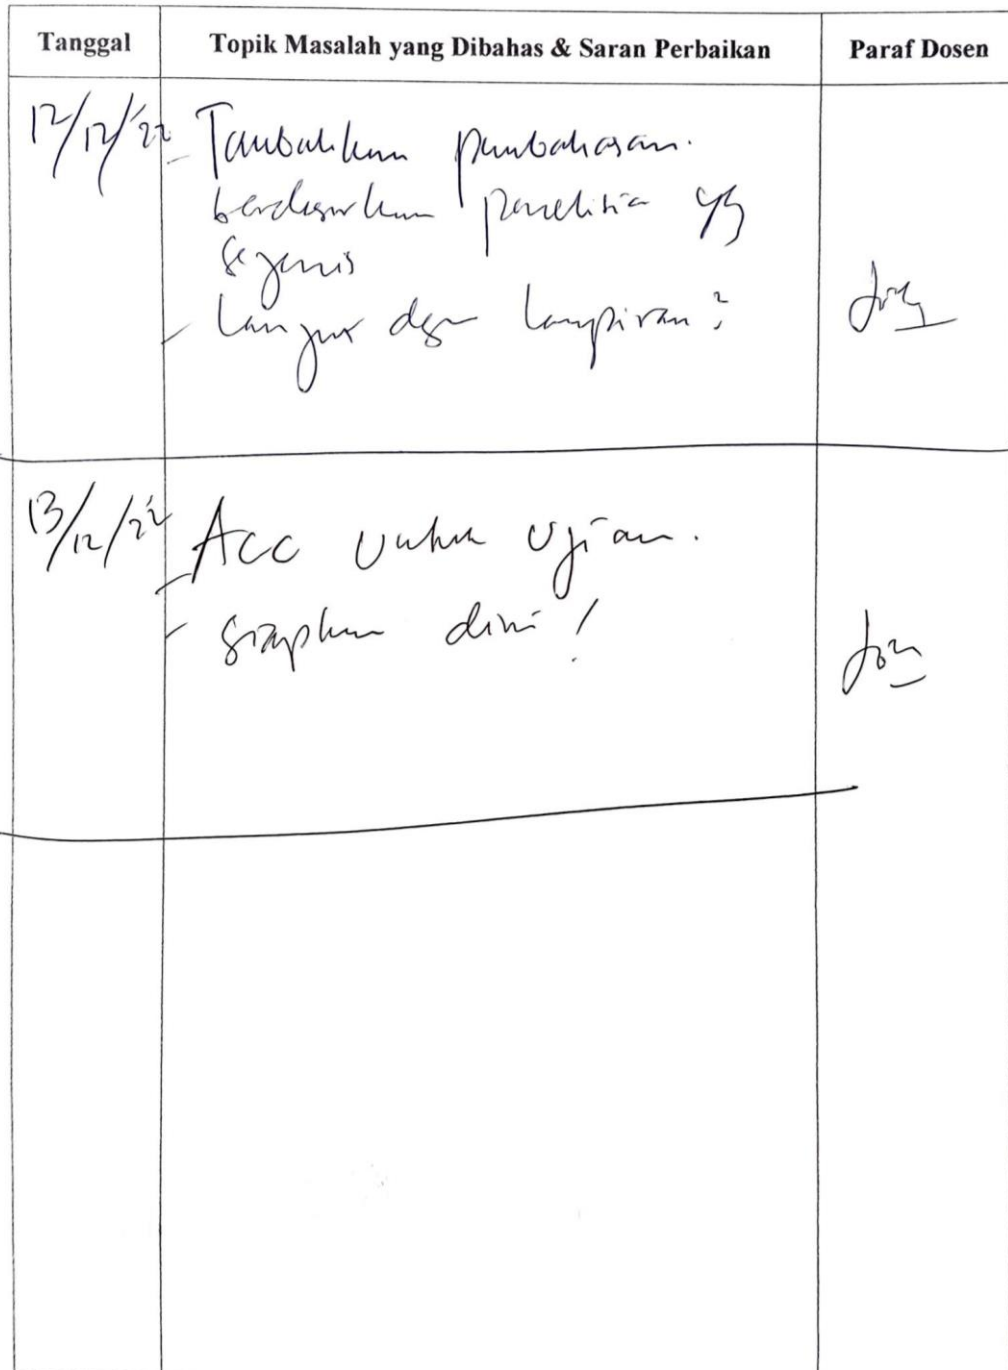 Tanggal Topik Masalah yang Dibahas & Saran Perbaikan Paraf Dosen
12/12/'22 - Tambahkan pembahasan.
berdasarkan penelitian yg
sejenis
- dgn lampiran
13/12/22 - Acc untuk Ujian.
- siapkan diri!